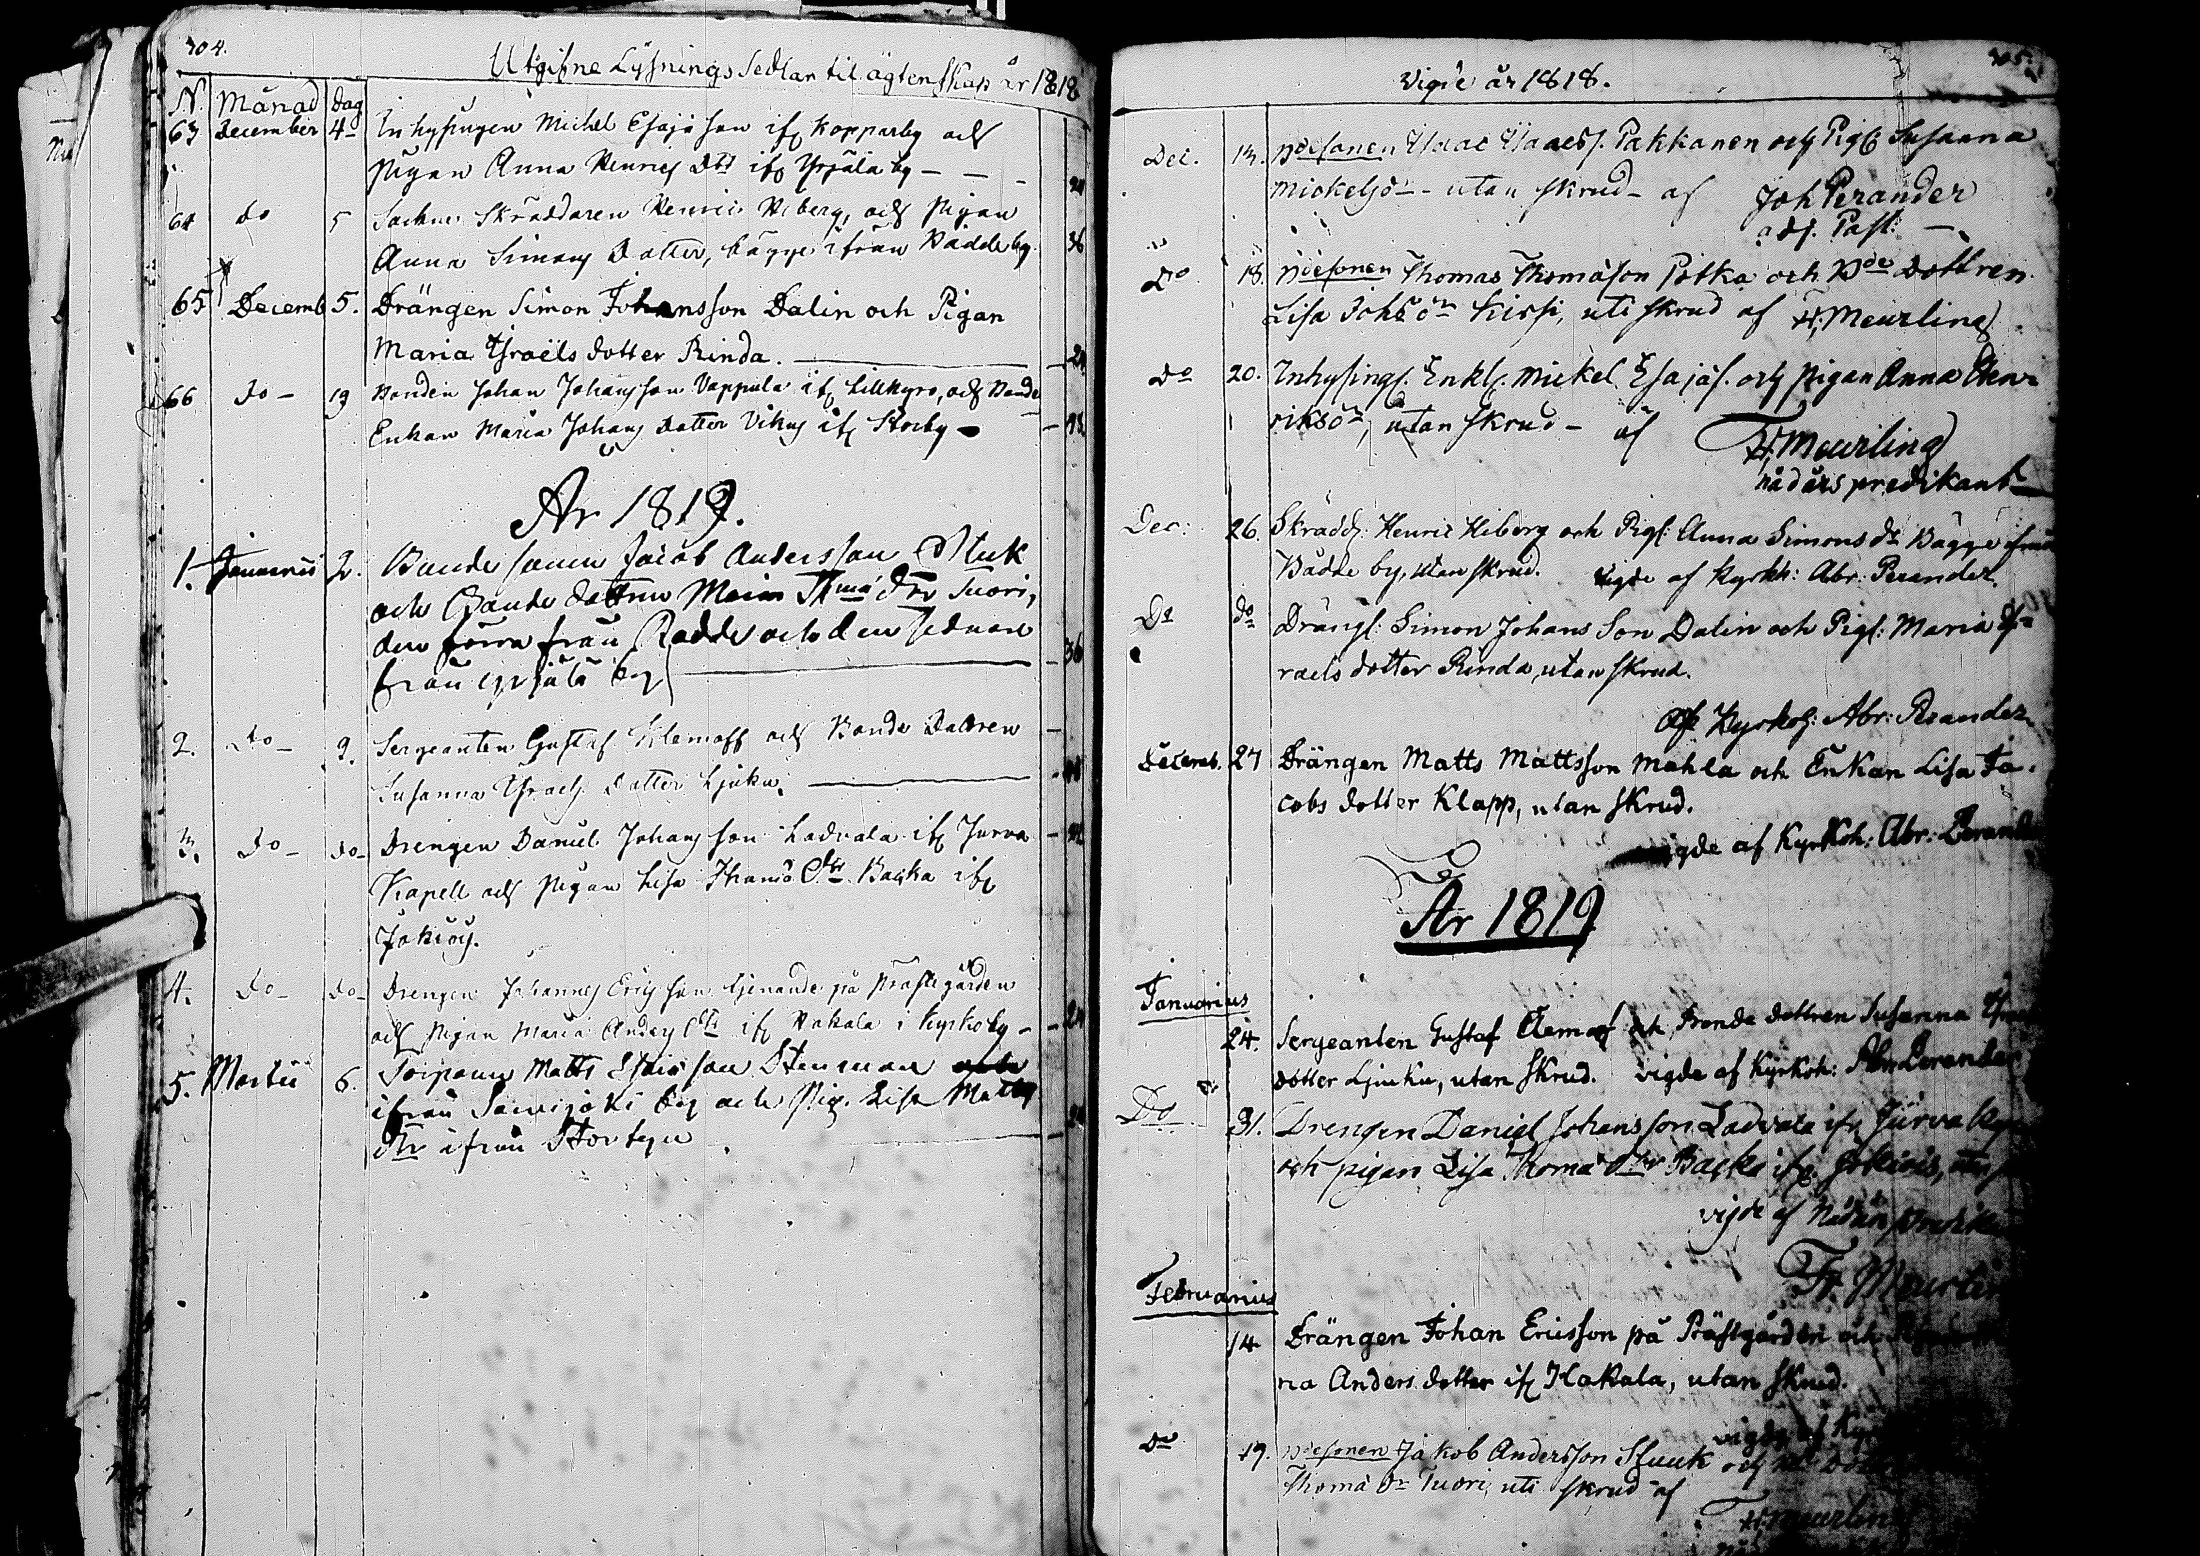 704.
Utgifne Lysnings Sedlar til ägtenskap År 1818
N. Månad dag
63 December 4 Inhysingen Michel Esajæson ifr Kopparby och
Pigan Anna Henrics Dtr ifr Yrjälä by — — — 24
64 do 5 Sockne Skräddaren Henric Hiberg, och Pigan
Anna Simons Dotter, bägge ifrån Bådde by 36
65 Decemb 5. Drängen Simon Johansson Dalin och Pigan
Maria Israëls dotter Rinda. — 24
66 do — 19 Bonden Johan Johansson Vappula ifr Lillkyro, och Bonde
Enkan Maria Johans Dotter Vikus ifr Storby — 48
År 1819.
1. Januarii 2. Bonde sonen Jacob Andersson Stuk
och Bonde dottren Maria Thmæ dtr Tuori,
den förra från Badde och den sednare
från Yrjälä by — 36
2. Do — 9. Sergeanten Gustaf Klemoff och Bonde Dottren
Susanna Israels Dotter Ljuku. — 48
3. Do — do — Drengen Daniel Johansson Ladvala ifr Jurva
Kapell och Pigan Lisa Thomæ Dtr Backa ifr
Jokiois.
4. Do — do — Drengen Johannes Ericsson tjenande på Prästegården
och Pigan Maria Anders Dtr ifr Hakala i Kyrkoby — 24
5. Martii 6. Torparen Matts Esaiæson Stenman
ifrån Sarvijoki by och Pig. Lisa Matts
dtr ifrån Storbyn — 24
705.
Vigde år 1818.
Dec. 13. Bdesonen Isaac Isaacss. Pakkanen och Pigs Susanna
Mickelsdr — utan skrud — af Joh Perander
adj. Past:
Do 18. Bdesonen Thomas Thomasson Potka och Bde Dottren
Lisa Johsdr Kirsi, uti skrud af Fr. Meurling
Do 20. Inhysings. Enkl. Mickel Esajas. och pigan Anna Hen-
riksdr, utan skrud — af Fr. Meurling
nådårs predikant
Dec: 26. Skrädd: Henric Hiberg och Pigs: Anna Simons dr Bägge ifrån
Bådde by, utan skrud. vigde af Kyrkh: Abr: Perander.
Do do Drängs: Simon Johans Son Dalin och Pigs: Maria Is-
raels dotter Rinda, utan skrud.
Af Kyrkoh: Abr: Perander
Decemb. 27 Drängen Matts Mattsson Mahla och Enkan Lisa Ja-
cobs dotter Klapp, utan skrud.
vigde af Kyrkoh: Abr: Perander
År 1819
Januarius
24. Sergeanten Gustaf Clemoff och Bonde dottren Susanna Israels
dotter Ljuku, utan skrud. vigde af Kyrkoh: Abr: Perander
Do 31. Drengen Daniel Johansson Ladvala ifr Jurva
och pigan Lisa Thomæ Dtr Backa ifr Jokiois,
vigde af Nådårs Predik
Fr. Meurlin
Februarius
14 Drängen Johan Ericsson på Prästgården och
ria Anders dotter ifr Hakala, utan skrud.
vigde af Kyr
Do 19. Bdesonen Jakob Andersson Stuuk och Bde
Thomæ dr Tuori, uti skrud af
Fr. Meurlin